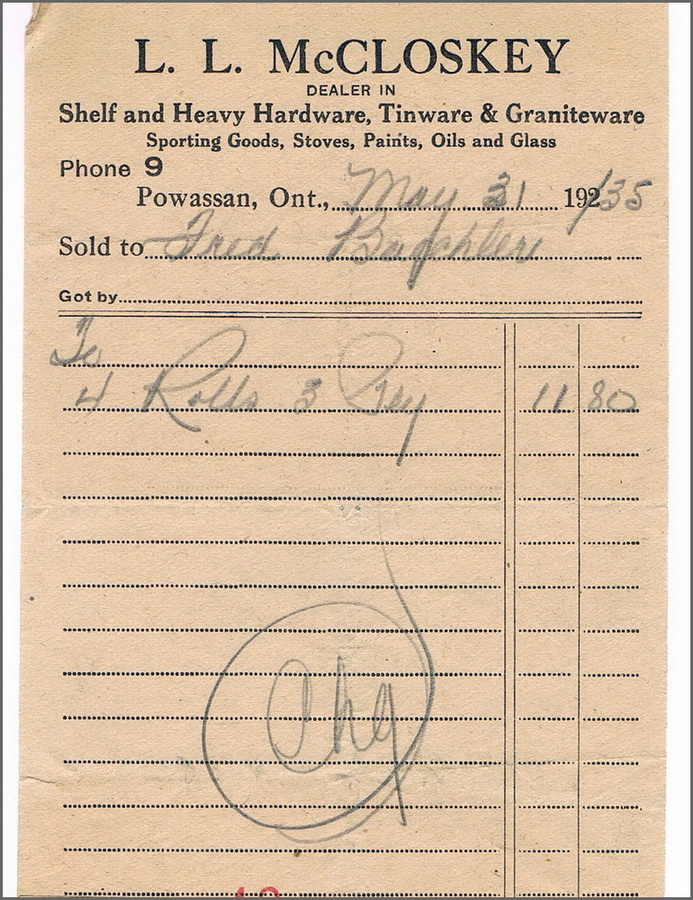 L. L. McCLOSKEY
DEALER IN
Shelf and Heavy Hardware, Tinware & Graniteware
Sporting Goods, Stoves, Paints, Oils and Glass
Phone 9
Powassan, Ont., May 31 192/35
Sold to Fred
Got by
To
4 Rolls 3 11 80
Chg